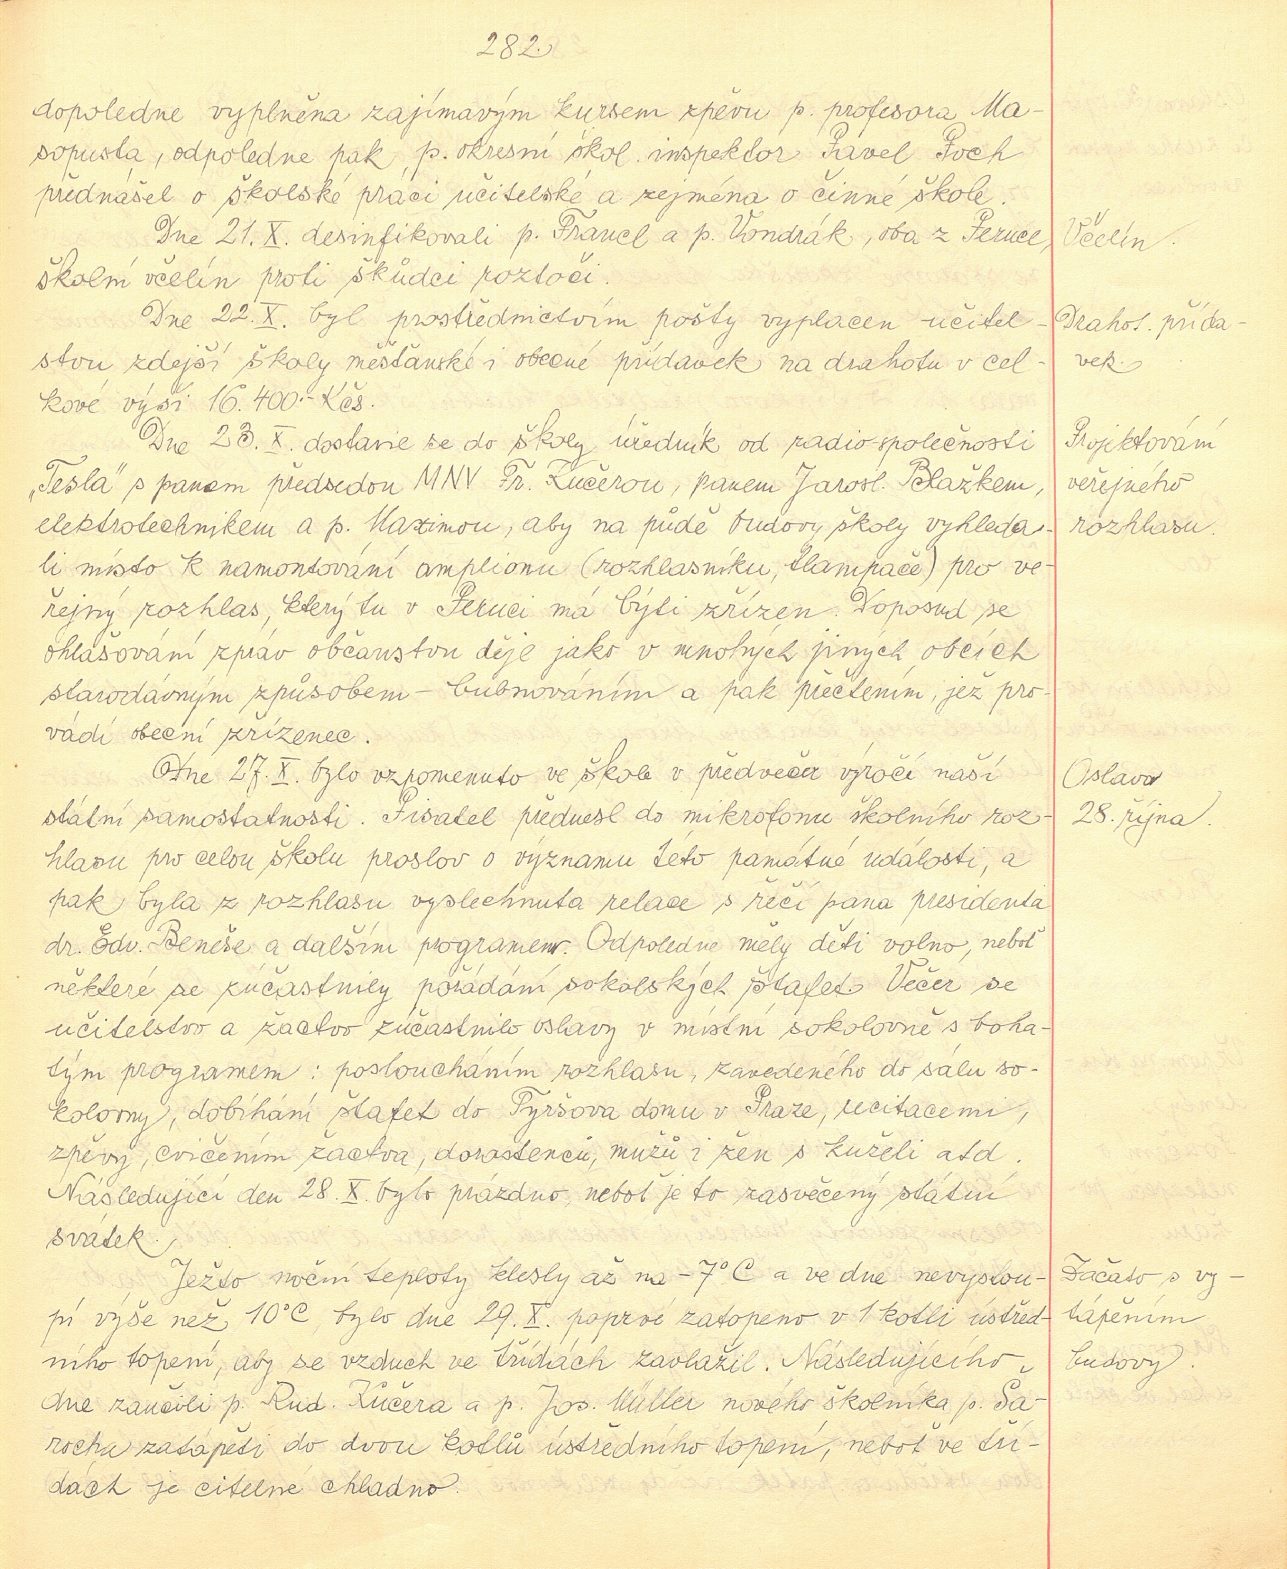 282.
dopoledne vyplněna zajímavým kursem zpěvu p. profesora Ma-
sopusta, odpoledne pak p. okresní škol. inspektor Pavel Poch
přednášel o školské práci učitelské a zejména o činné škole.
Dne 21. X. desinfikovali p. Francl a p. Vondrák, oba z Peruce,
Včelín.
školní včelín proti škůdci roztoči.
Dne 22. X. byl prostřednictvím pošty vyplacen učitel-
Drahot. přída-
stvu zdejší školy měšťanské i obecné přídavek na drahotu v cel-
vek.
kové výši 16.400.- Kčs.
Dne 23. X. dostavil se do školy úředník od radio-společnosti
Projektování
„Tesla" s panem předsedou MNV Fr. Kučerou, panem Jarosl. Blažkem,
veřejného
elektrotechnikem a p. Maximou, aby na půdě budovy školy vyhleda-
rozhlasu.
li místo k namontování amplionu (rozhlasníku, tlampače) pro ve-
řejný rozhlas, který tu v Peruci má býti zřízen. Doposud se
ohlašování zpráv občanstvu děje jako v mnohých jiných obcích
starodávným způsobem - bubnováním a pak přečtením, jež pro-
vádí obecní zřízenec.
Dne 27. X. bylo vzpomenuto ve škole v předvečer výročí naší
Oslava
státní samostatnosti. Pisatel přednesl do mikrofonu školního roz-
28. října.
hlasu pro celou školu proslov o významu této památné události, a
pak byla z rozhlasu vyslechnuta relace s řečí pana presidenta
dr. Edv. Beneše a dalším programem. Odpoledne měly děti volno, neboť
některé se zúčastnily pořádání sokolských štafet. Večer se
učitelstvo a žactvo zúčastnilo oslavy v místní sokolovně s boha-
tým programem: posloucháním rozhlasu, zavedeného do sálu so-
kolovny, dobíhání štafet do Tyršova domu v Praze, recitacemi,
zpěvy, cvičením žactva, dorostenců, mužů i žen s kuželi atd.
Následující den 28. X. bylo prázdno, neboť je to zasvěcený státní
svátek.
Ježto noční teploty klesly až na -7°C a ve dne nevystou-
Začato s vy-
pí výše než 10°C, bylo dne 29. X. poprvé zatopeno v 1 kotli ústřed-
tápěním
ního topení, aby se vzduch ve třídách zavlažil. Následujícího
budovy.
dne zaučili p. Rud. Kučera a p. Jos. Müller nového školníka p. Ša-
rocha zatápěti do dvou kotlů ústředního topení, neboť ve tří-
dách je citelně chladno.